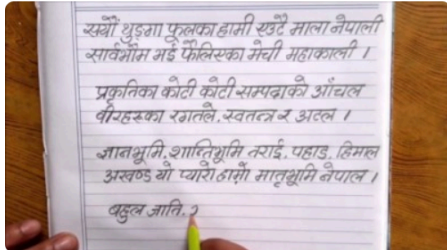 सयौँ थुङ्गा फूलका हामी एउटै माला नेपाली
सार्वभौम भई फैलिएका मेची महाकाली ।
प्रकृतिका कोटी कोटी सम्पदाको आँचल
वीरहरूका रगतले, स्वतन्त्र र अटल ।
ज्ञानभूमि, शान्तिभूमि तराई, पहाड, हिमाल
अखण्ड यो प्यारो हाम्रो मातृभूमि नेपाल ।
बहुल जाति,